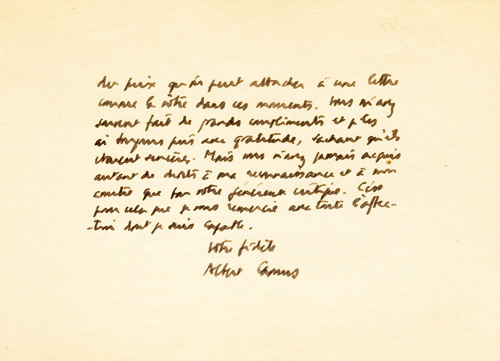 du prix qu'on peut attacher à une lettre
comme la vôtre dans ces moments. Vous m'avez
souvent fait de grands compliments et je les
ai toujours pris avec gratitude, sachant qu'ils
étaient sincères. Mais vous n'avez jamais acquis
autant de droits à ma reconnaissance et à mon
que par votre généreuse critique. C'est
pour cela que je vous remercie avec toute l'affec-
-tion dont je suis capable.
Votre fidèle
Albert Camus